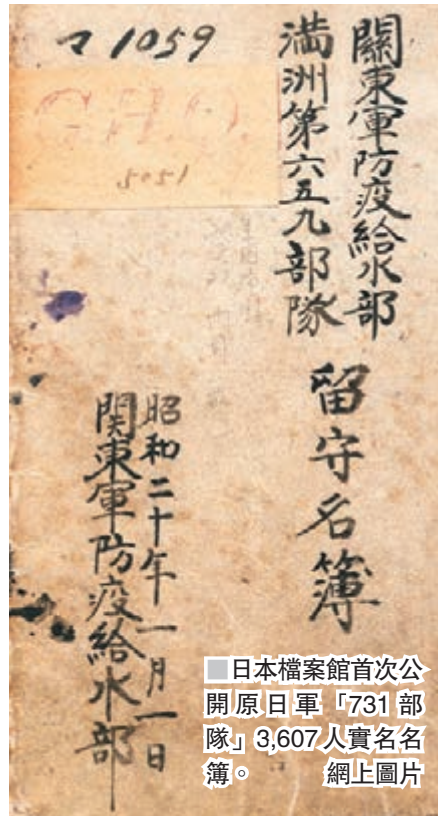 マ 1059
G.H.Q.
5051
關東軍防疫給水部
満洲第六五九部隊
留守名簿
昭和二十年一月一日
関東軍防疫給水部
■日本檔案館首次公
開原日軍「731部
隊」3,607人實名名
簿。 網上圖片